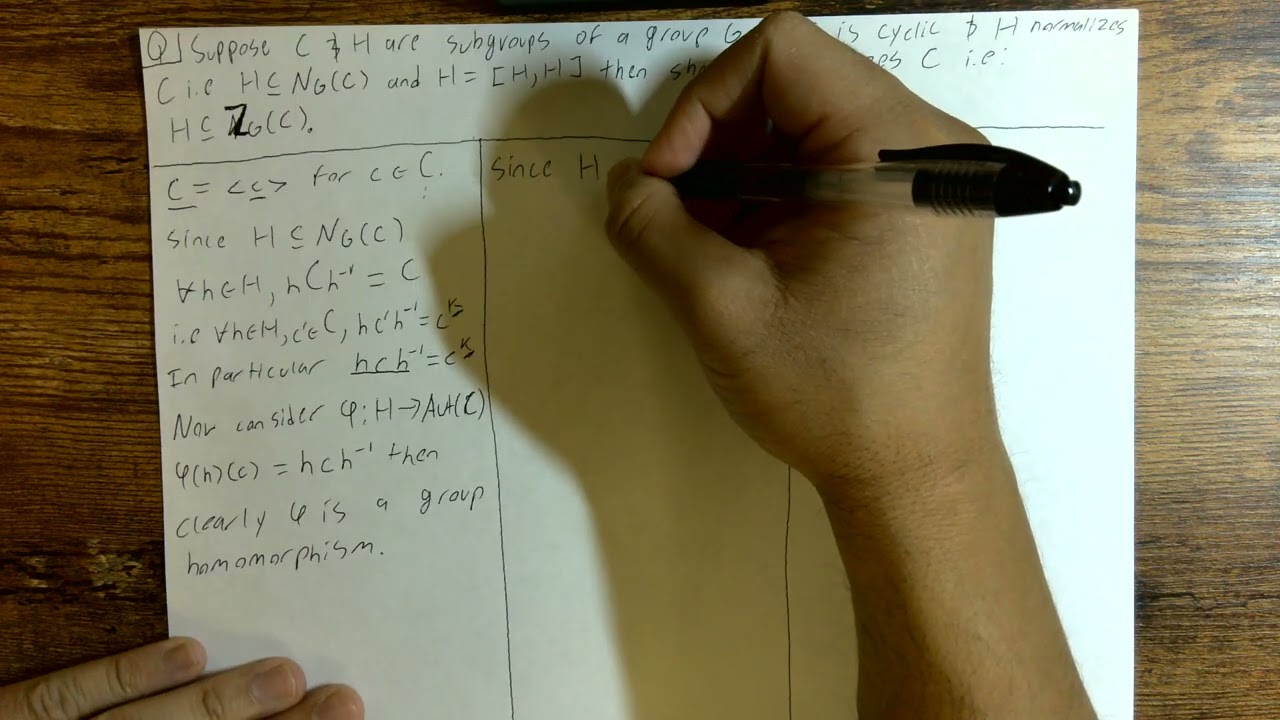 Q] Suppose C & H are subgroups of a group G is cyclic & H normalizes
C i.e H ⊆ NG(C) and H = [H, H] then C i.e:
H ⊆ ZG(C).
C = <c> for c ∈ C.
since H ⊆ NG(C)
∀h∈H, hCh⁻¹ = C
i.e ∀h∈H, c'∈C, hc'h⁻¹ = cᵏ
In particular hch⁻¹ = cᵏ
Now consider φ: H → Aut(C)
φ(h)(c) = hch⁻¹ then
clearly φ is a group
homomorphism.
since H